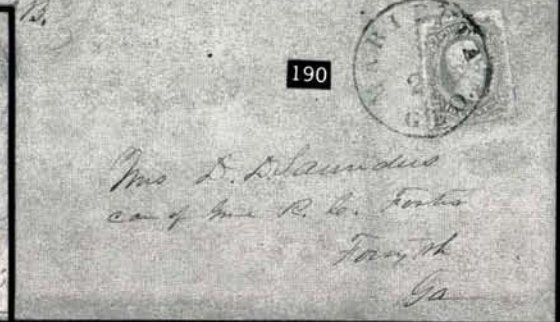 B.
190
MARIETTA
2
GEO.
Mrs D. D. Saunders
care of Mr R. C.
Forsyth
Ga